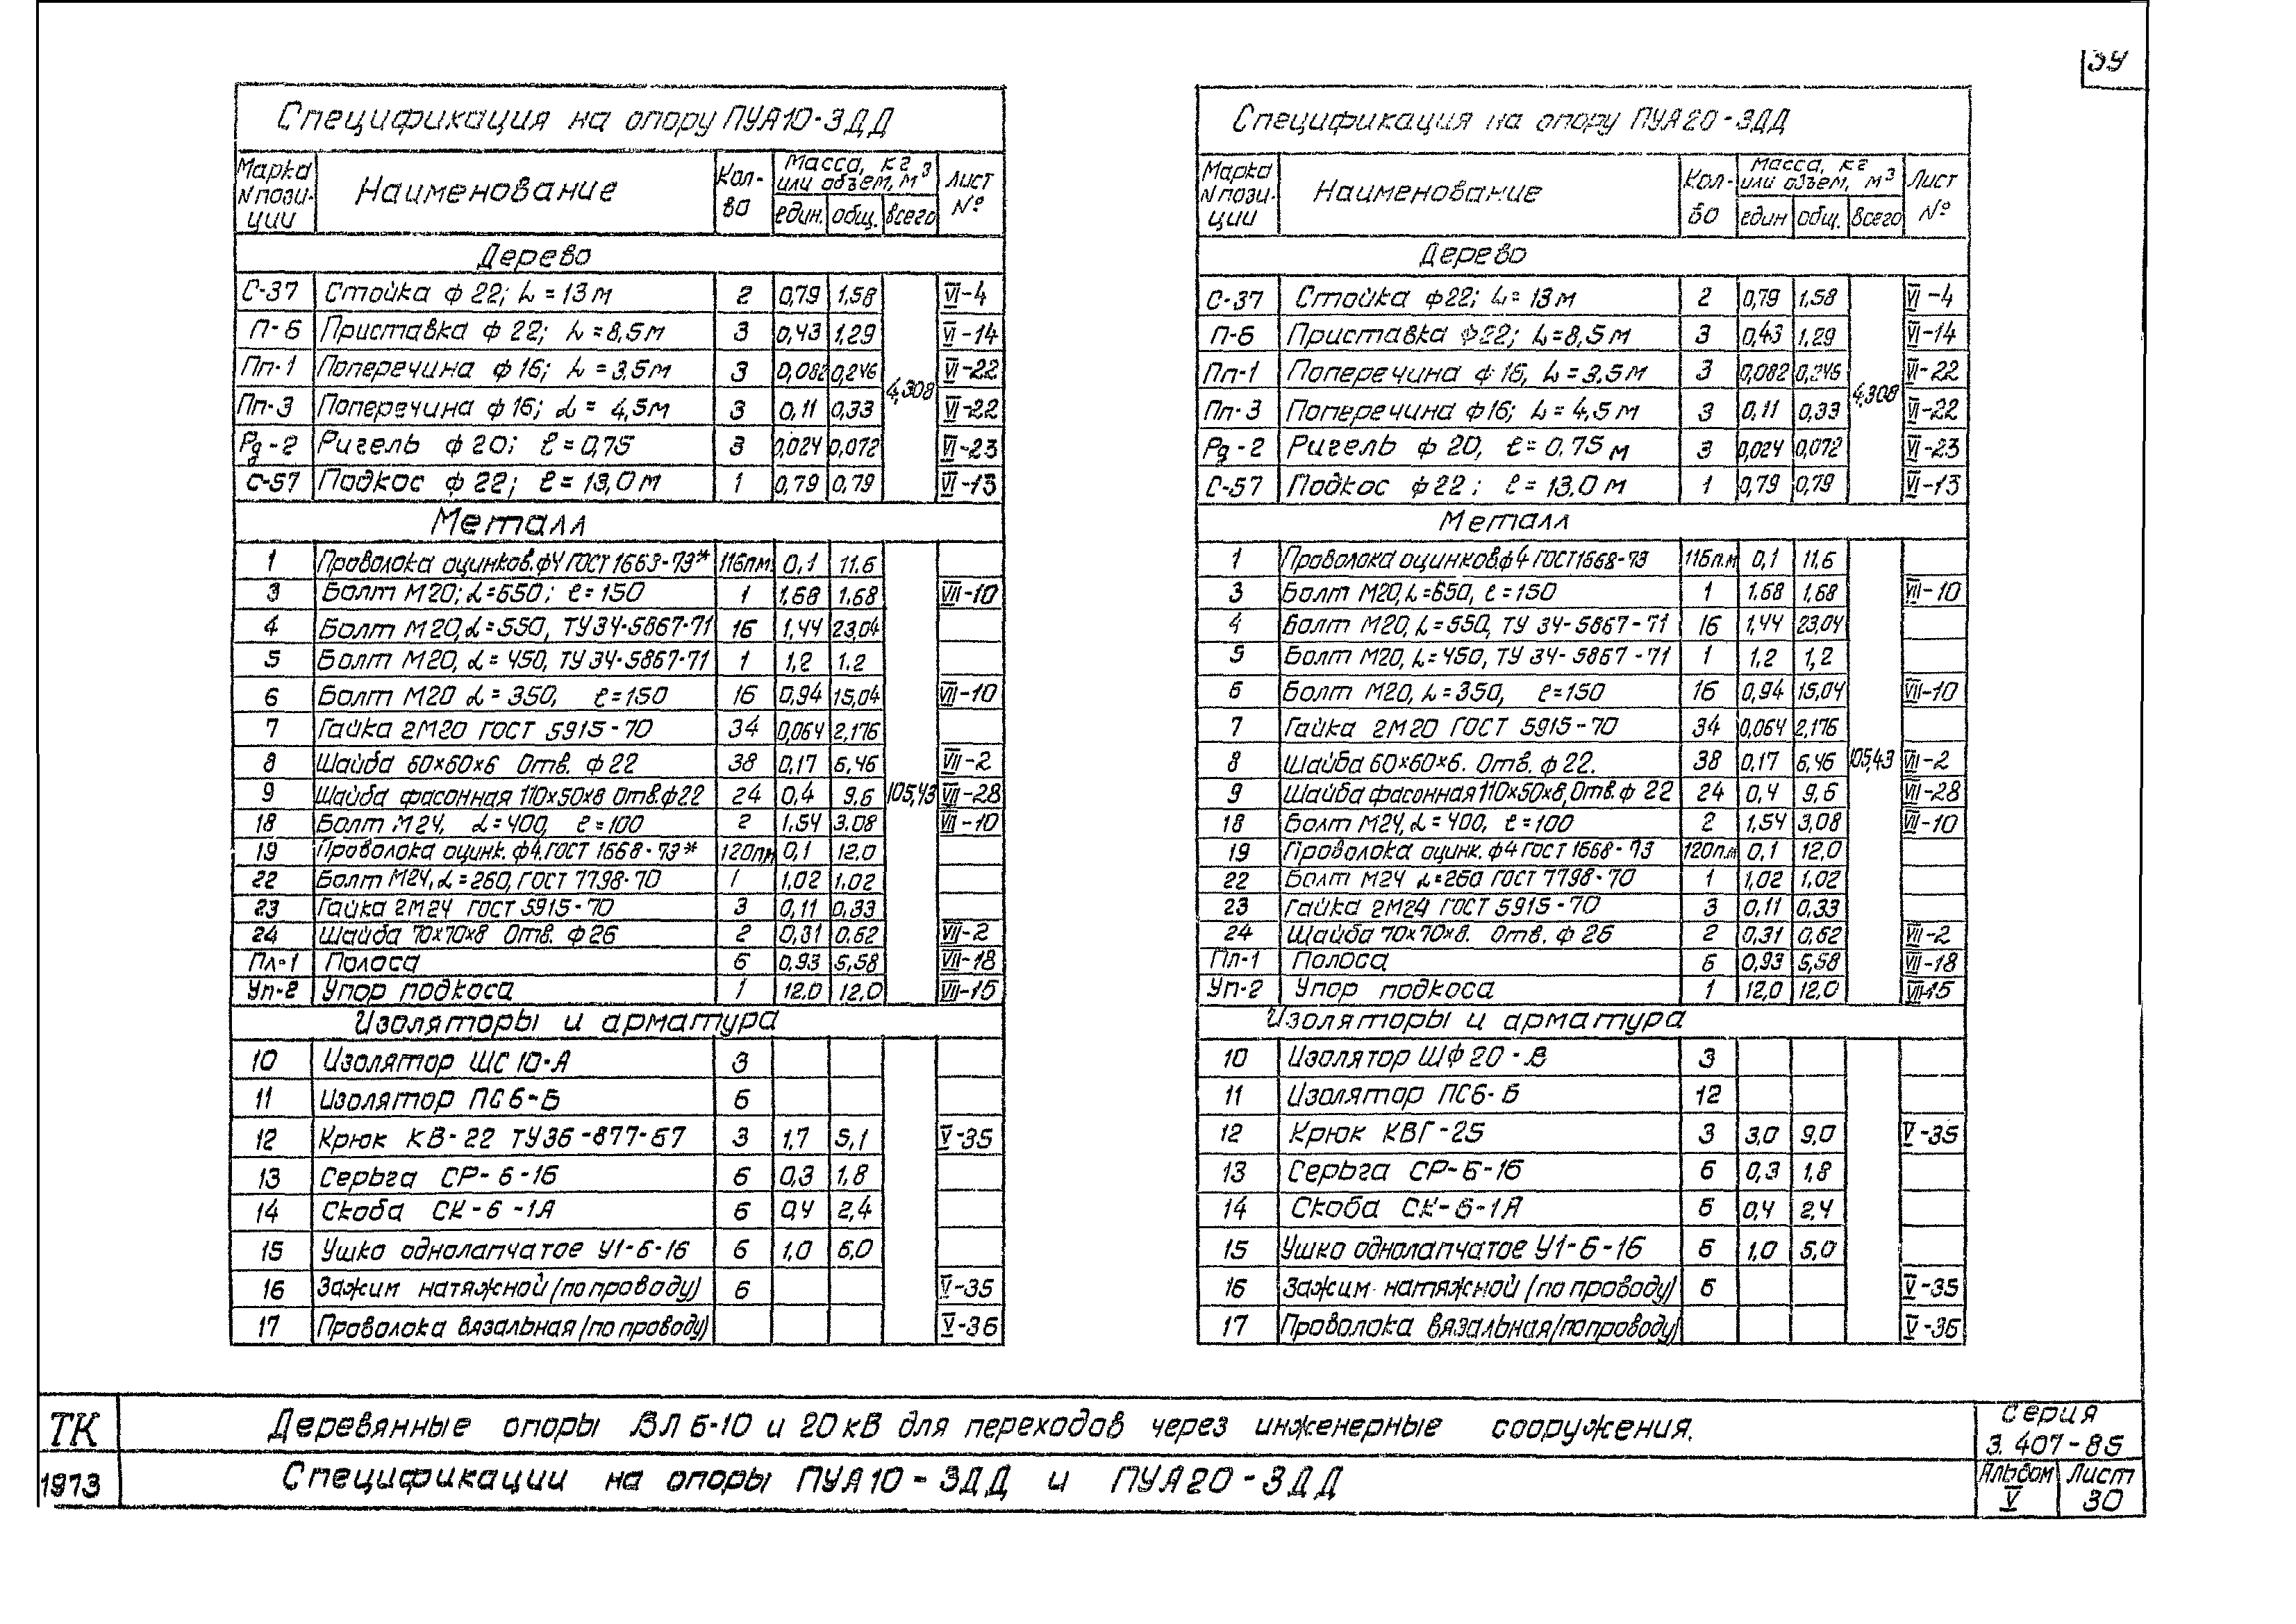 39
Спецификация на опору ПУА10-3ДД
Марка N пози-ции | Наименование | Кол-во | Масса, кг или объем, м³ | Лист №
един. | общ. | всего
Дерево
С-37 | Стойка ф 22; L = 13 м | 2 | 0,79 | 1,58 | VI-4
П-6 | Приставка ф 22; L = 8,5 м | 3 | 0,43 | 1,29 | VI-14
Пп-1 | Поперечина ф 16; L = 3,5 м | 3 | 0,082 | 0,246 | 4,308 | VI-22
Пп-3 | Поперечина ф 16; L = 4,5 м | 3 | 0,11 | 0,33 | VI-22
Рд-2 | Ригель ф 20; ℓ = 0,75 | 3 | 0,024 | 0,072 | VI-23
С-57 | Подкос ф 22; ℓ = 13,0 м | 1 | 0,79 | 0,79 | VI-13
Металл
1 | Проволока оцинков. ф4 ГОСТ 1668-73* | 116 п.м. | 0,1 | 11.6
3 | Болт М20; L=650; ℓ=150 | 1 | 1,68 | 1,68 | VII-10
4 | Болт М20, L=550, ТУ 34-5867-71 | 16 | 1,44 | 23,04
5 | Болт М20, L=450, ТУ 34-5867-71 | 1 | 1,2 | 1.2
6 | Болт М20 L=350, ℓ=150 | 16 | 0,94 | 15,04 | VII-10
7 | Гайка 2М20 ГОСТ 5915-70 | 34 | 0,064 | 2,176
8 | Шайба 60×60×6 Отв. ф 22 | 38 | 0,17 | 6,46 | VII-2
9 | Шайба фасонная 110×50×8 Отв. ф22 | 24 | 0,4 | 9,6 | 105,43 | VII-28
18 | Болт М24, L=400, ℓ=100 | 2 | 1,54 | 3.08 | VII-10
19 | Проволока оцинк. ф4. ГОСТ 1668-73* | 120 пм | 0,1 | 12.0
22 | Болт М24, L=260, ГОСТ 7798-70 | 1 | 1,02 | 1.02
23 | Гайка 2М24 ГОСТ 5915-70 | 3 | 0,11 | 0,33
24 | Шайба 70×70×8 Отв. ф 26 | 2 | 0,31 | 0.62 | VII-2
Пл-1 | Полоса | 6 | 0,93 | 5,58 | VII-18
Уп-2 | Упор подкоса | 1 | 12.0 | 12,0 | VII-15
Изоляторы и арматура
10 | Изолятор ШС 10-А | 3
11 | Изолятор ПС6-Б | 6
12 | Крюк КВ-22 ТУ36-877-67 | 3 | 1,7 | 5,1 | V-35
13 | Серьга СР-6-16 | 6 | 0,3 | 1,8
14 | Скоба СК-6-1А | 6 | 0,4 | 2,4
15 | Ушко однолапчатое У1-6-16 | 6 | 1,0 | 6,0
16 | Зажим натяжной (по проводу) | 6 | V-35
17 | Проволока вязальная (по проводу) | V-36
Спецификация на опору ПУА20-3ДД
Марка N пози-ции | Наименование | Кол-во | Масса, кг или объем, м³ | Лист №
един | общ. | всего
Дерево
С-37 | Стойка ф22; L = 13 м | 2 | 0,79 | 1,58 | VI-4
П-6 | Приставка ф22; L=8,5 м | 3 | 0,43 | 1,29 | VI-14
Пп-1 | Поперечина ф 16, L = 3,5 м | 3 | 0,082 | 0,246 | VI-22
Пп-3 | Поперечина ф16; L = 4,5 м | 3 | 0,11 | 0,33 | 4,308 | VI-22
Рд-2 | Ригель ф 20, ℓ = 0.75 м | 3 | 0,024 | 0,072 | VI-23
С-57 | Подкос ф22; ℓ = 13.0 м | 1 | 0,79 | 0,79 | VI-13
Металл
1 | Проволока оцинков. ф4 ГОСТ 1668-73 | 116 п.м | 0,1 | 11,6
3 | Болт М20, L=650, ℓ=150 | 1 | 1.68 | 1,68 | VII-10
4 | Болт М20, L=550, ТУ 34-5867-71 | 16 | 1,44 | 23,04
5 | Болт М20, L=450, ТУ 34-5867-71 | 1 | 1.2 | 1,2
6 | Болт М20, L=350, ℓ=150 | 16 | 0,94 | 15,04 | VII-10
7 | Гайка 2М20 ГОСТ 5915-70 | 34 | 0,064 | 2,176
8 | Шайба 60×60×6. Отв. ф 22. | 38 | 0,17 | 6,46 | 105,43 | VII-2
9 | Шайба фасонная 110×50×8, Отв ф 22 | 24 | 0,4 | 9,6 | VII-28
18 | Болт М24, L=400, ℓ=100 | 2 | 1,54 | 3,08 | VII-10
19 | Проволока оцинк. ф4 ГОСТ 1668-73 | 120 п.м | 0,1 | 12,0
22 | Болт М24 L=260 ГОСТ 7798-70 | 1 | 1,02 | 1,02
23 | Гайка 2М24 ГОСТ 5915-70 | 3 | 0,11 | 0,33
24 | Шайба 70×70×8. Отв. ф 26 | 2 | 0,31 | 0,62 | VII-2
Пл-1 | Полоса | 6 | 0,93 | 5,58 | VII-18
Уп-2 | Упор подкоса | 1 | 12,0 | 12,0 | VII-15
Изоляторы и арматура
10 | Изолятор ШФ20-В | 3
11 | Изолятор ПС6-Б | 12
12 | Крюк КВГ-25 | 3 | 3,0 | 9,0 | V-35
13 | Серьга СР-6-16 | 6 | 0,3 | 1,8
14 | Скоба СК-6-1А | 6 | 0,4 | 2,4
15 | Ушко однолапчатое У1-6-16 | 6 | 1,0 | 6,0
16 | Зажим натяжной (по проводу) | 6 | V-35
17 | Проволока вязальная (по проводу) | V-36
ТК | Деревянные опоры ВЛ 6-10 и 20 кВ для переходов через инженерные сооружения. | серия 3.407-85
1973 | Спецификации на опоры ПУА10-3ДД и ПУА20-3ДД | Альбом V | Лист 30